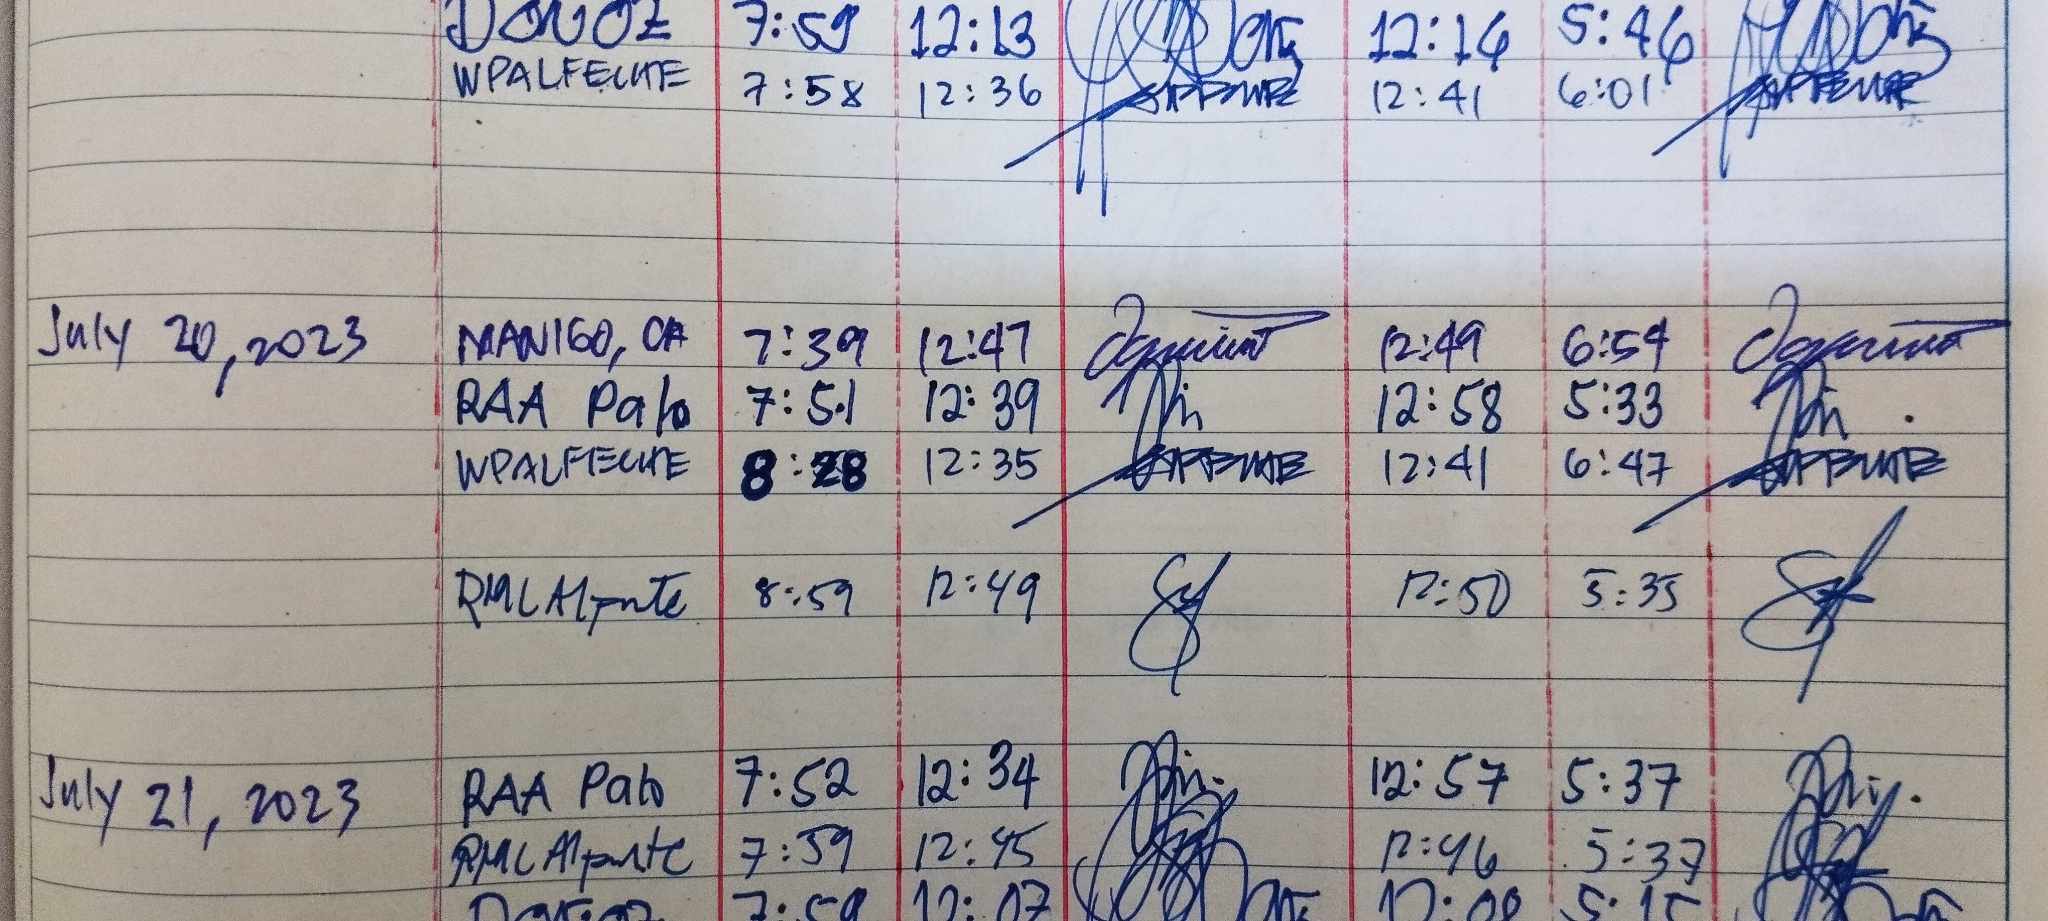 DONOZ 7:59 12:13 12:14 5:46
WPALFECHE 7:58 12:36 12:41 6:01
July 20, 2023 MANIGO, CA 7:39 12:47 12:49 6:54
RAA Palo 7:51 12:39 12:58 5:33
WPALFECHE 8:28 12:35 12:41 6:47
RMLAlponte 8:59 12:49 12:50 5:35
July 21, 2023 RAA Palo 7:52 12:34 12:57 5:37
RMLAlponte 7:59 12:45 12:46 5:37
7:59 12:07 12:08 5:15